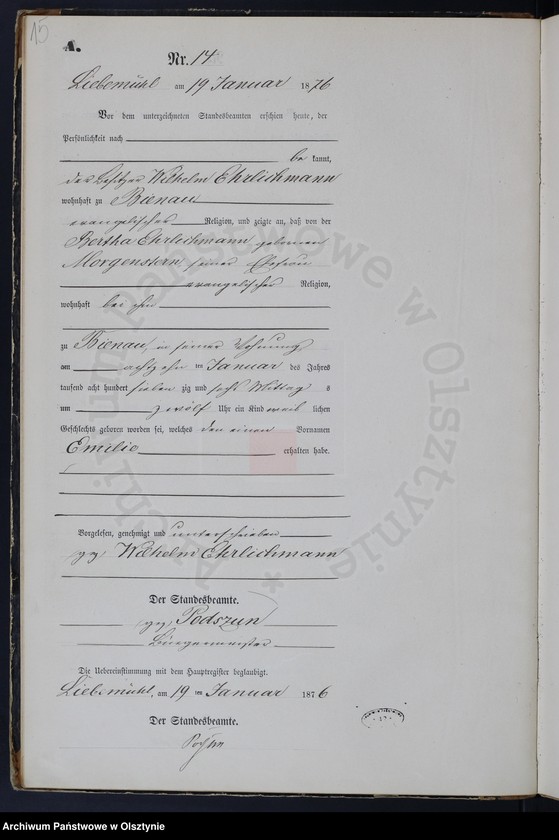 15
A.
Nr. 14
Liebemühl am 19 Januar 1876
Vor dem unterzeichneten Standesbeamten erschien heute, der
Persönlichkeit nach
be kannt,
der Besitzer Wilhelm Ehrlichmann
wohnhaft zu Bienau
evangelischer Religion, und zeigte an, daß von der
Bertha Ehrlichmann geborenen
Morgenstern, seiner Ehefrau
evangelischer Religion,
wohnhaft bei ihm
zu Bienau, in seiner Wohnung
am achtzehn ten Januar des Jahres
tausend acht hundert sieben zig und sechs Mittag s
um zwölf Uhr ein Kind weib lichen
Geschlechts geboren worden sei, welches den einen Vornamen
Emilie erhalten habe.
Vorgelesen, genehmigt und unterschrieben
gg Wilhelm Ehrlichmann
Der Standesbeamte.
gg Podszun
Bürgermeister
Die Uebereinstimmung mit dem Hauptregister beglaubigt.
Liebemühl, am 19 ten Januar 1876
Der Standesbeamte.
Archiwum Państwowe w Olsztynie *
Archiwum Państwowe w Olsztynie